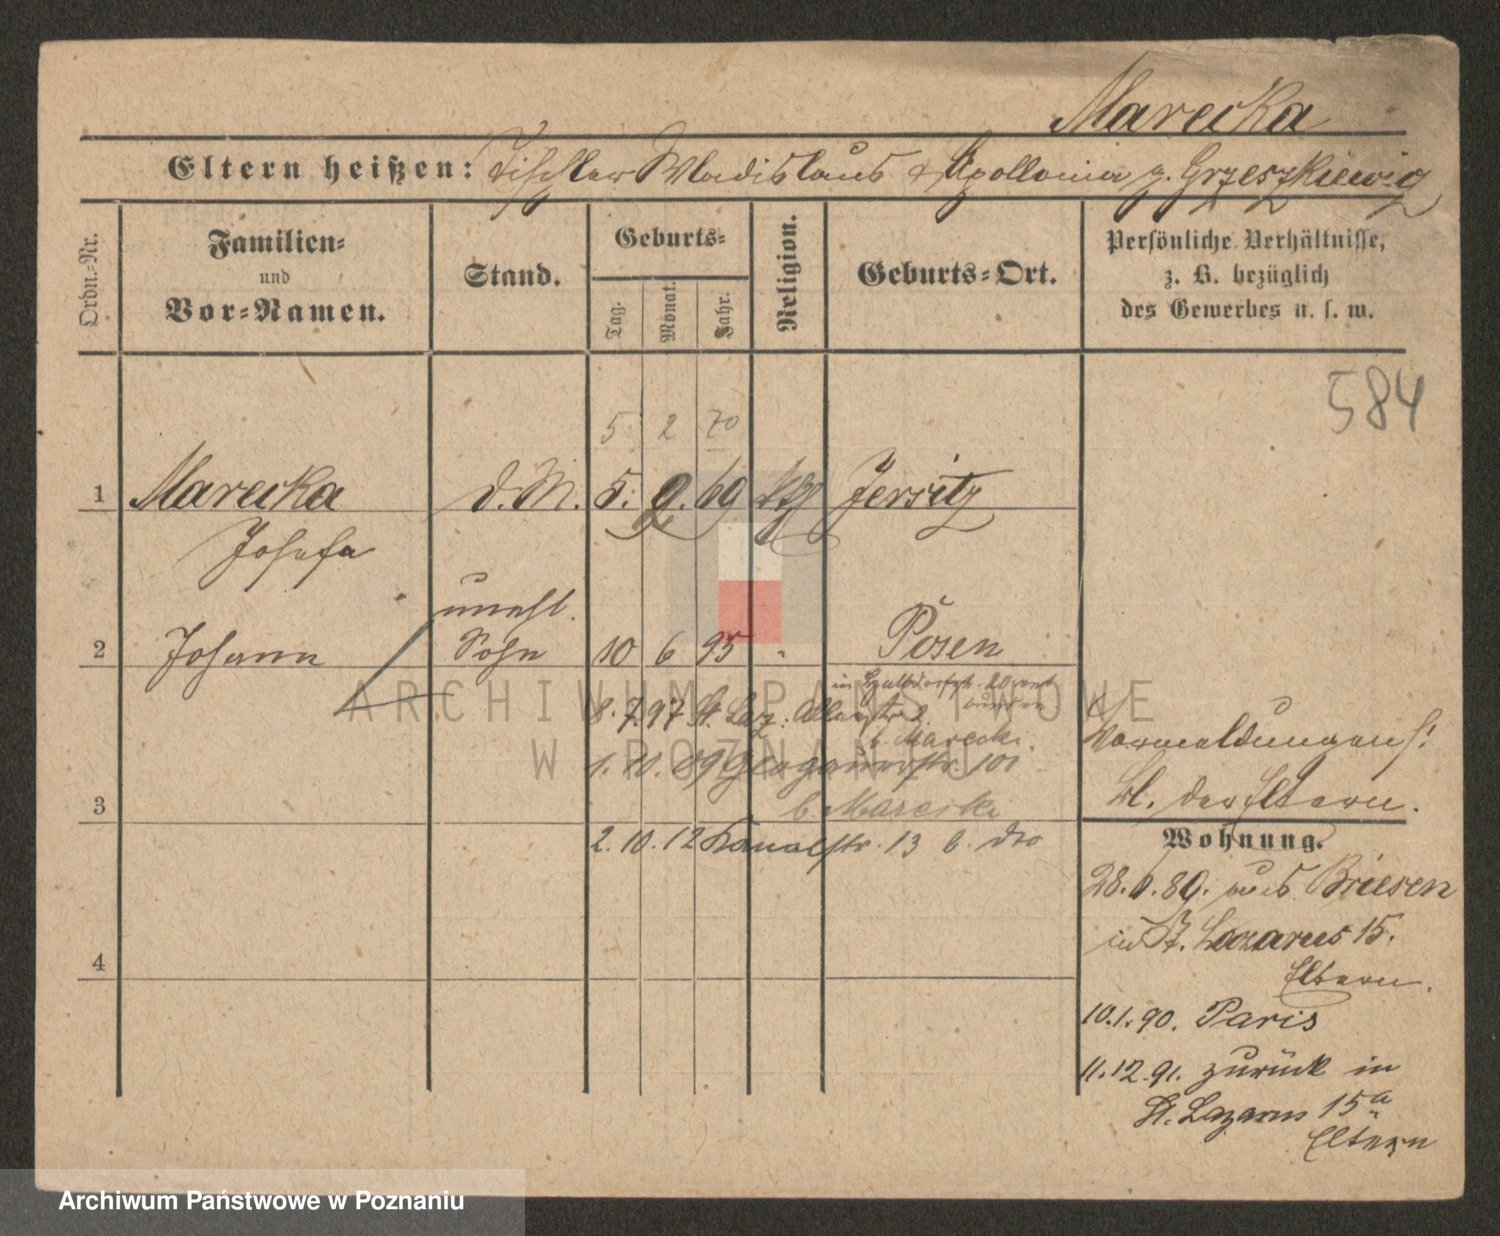 Marecka
Eltern heißen: Tischler Wladislaus & Apollonia g. Grzeszkiewicz
Ordn.-Nr.
Familien-
und
Vor-Namen.
Stand.
Geburts-
Tag.
Monat.
Jahr.
Religion.
Geburts-Ort.
Persönliche Verhältnisse,
z. B. bezüglich
des Gewerbes u. s. w.
584
5 2 70
1 Marecka d. M. 5. 2. 69 kth Jersitz
Josefa
unehl.
2 Johann Sohn 10 6 95 " Posen
8. 7. 97 St. Laz.
b. Marecki.
1. 10. 09 Glogauerstr. 101
3 b. Marecki
2. 10. 12 Kanalstr. 13 b. dto
4
Vormeldungen s:
Bl. der Eltern.
Wohnung.
28. 89. aus Briesen
in St. Lazarus 15.
Eltern.
10.1.90. Paris
11.12.91. zurück in
St. Lazarus 15a
Eltern
ARCHIWUM PAŃSTWOWE
W POZNANIU
Archiwum Państwowe w Poznaniu